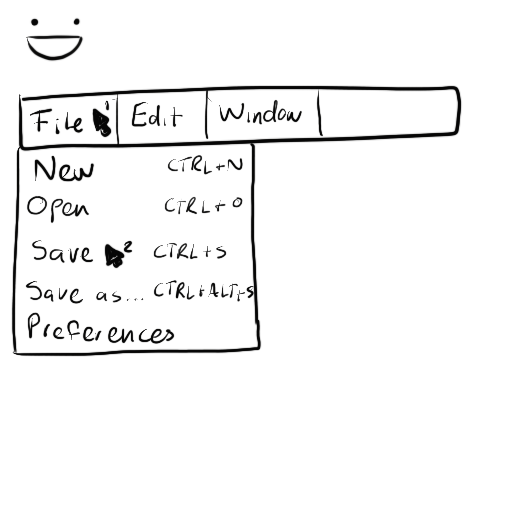 File 1 Edit Window
New CTRL+N
Open CTRL+O
Save 2 CTRL+S
Save as... CTRL+ALT+S
Preferences